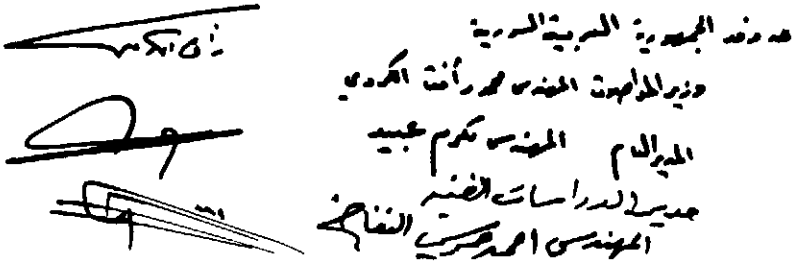 عن وفد الجمهورية العربية السورية
وزير المواصلات المهندس محمد رأفت الكردي
المدير العام المهندس مكرم عبيد
مدير الدراسات الفنية
المهندس احمد حسن التفاخ